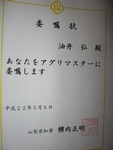 委嘱状
油井 弘 殿
あなたをアグリマスターに
委嘱します
平成22年5月6日
山梨県知事 横内正明